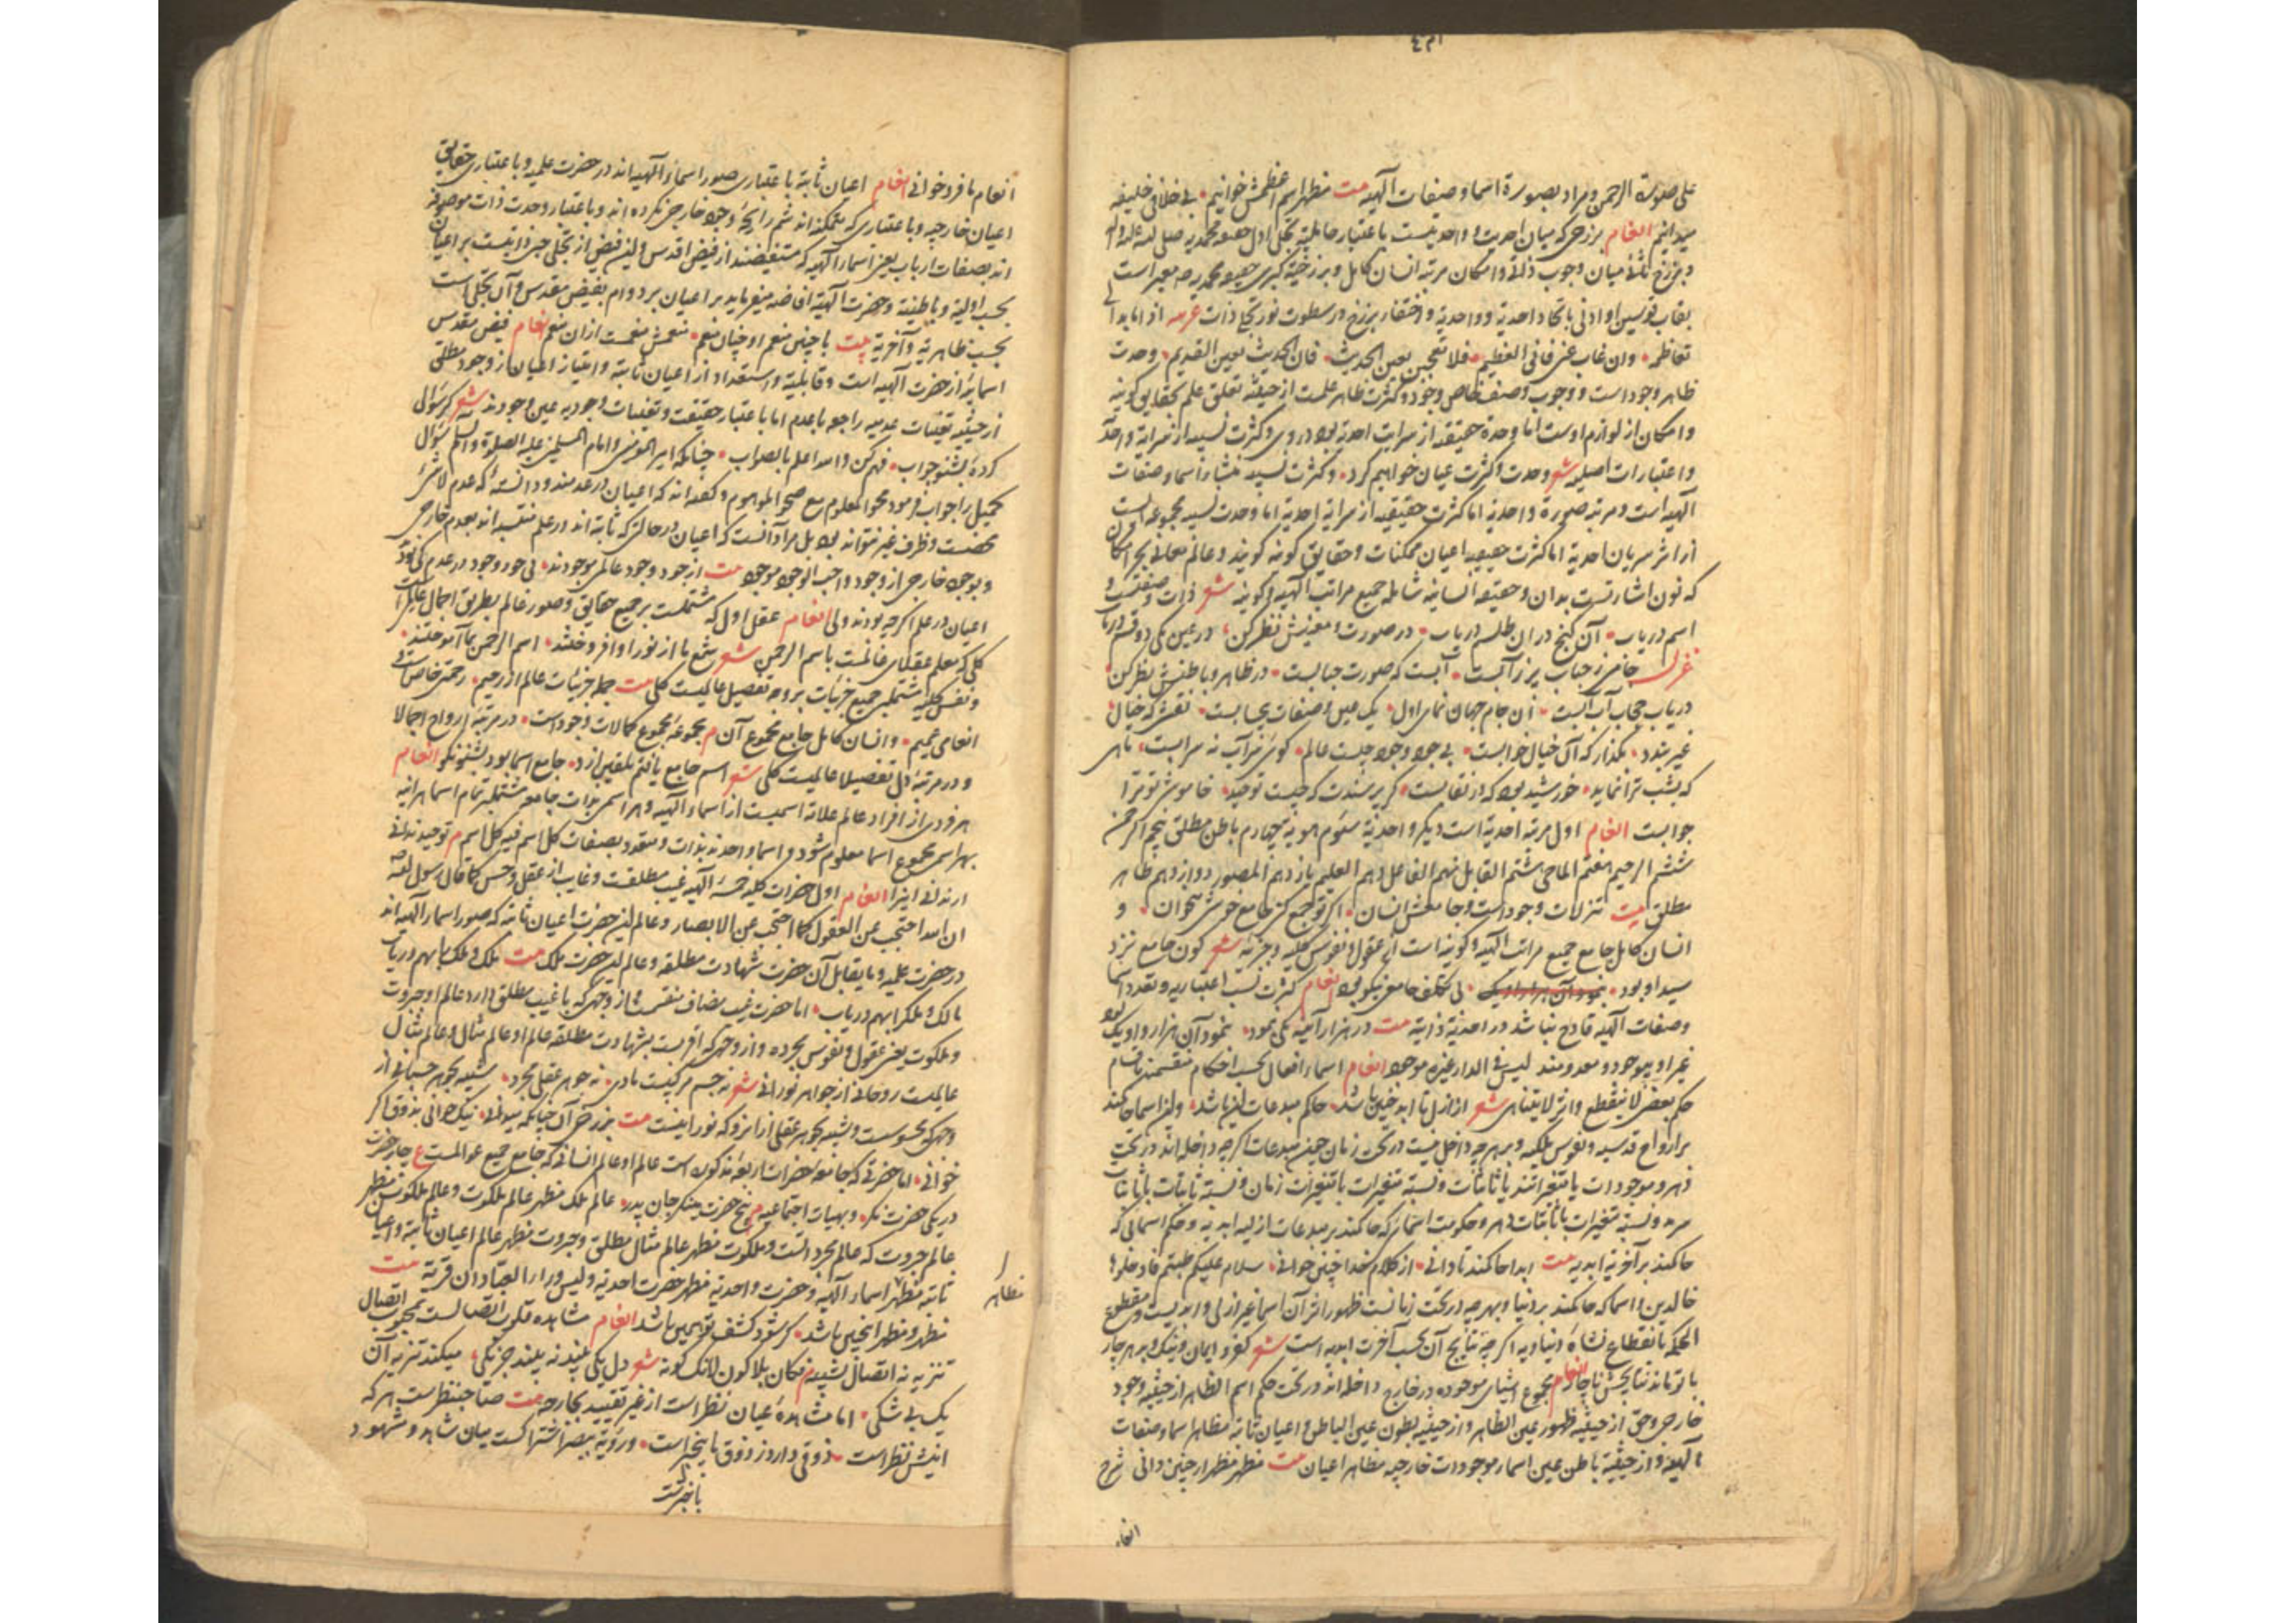 علی صورة الرحمن و مراد بصورة اسما و صفات الهیه است بیت مظهر اسم اعظمش خوانیم • بی خلافی خلیفه
میدانیم الغام برزخی که میان احدیت و واحدیتست باعتبار حاملیة تجلی اول حقیقه محمدیه صلی الله علیه و اله
و برزخ ثانی میان وجوب ذاتی و امکان مرتبه انسان کامل و برزخیة کبری حقیقه محمدیه معبر است
بقاب قوسین او ادنی باتحاد احدیة و واحدیة و اختفاء برزخ در سطوت نور تجلی ذات عربیه اذا ما بدا لی
تعاظمه • وان غاب عنی فانی العظیم • فلا تحجبن بعین الحدیث • فان الحدیث بعین القدیم • وحدت
ظاهر وجود است و وجوب وصف خاص وجود و کثرت ظاهر علمست از حیثیة تعلق علم بحقایق کونیه
و امکان از لوازم اوست اما وحدة حقیقیه از سرایت احدیة بود در وی و کثرت نسبیه از سرایة واحدیة
و اعتبارات اصلیه شعر وحدت و کثرت عیان خواهیم کرد • و کثرت نسبیه منشاء اسما و صفات
الهیه است و مرتبه صورة واحدیة اما کثرت حقیقیه از سرایة احدیة اما وحدت نسبیه مجموعه است
از اثر سریان احدیة اما کثرت حقیقیه اعیان ممکنات و حقایق کونیه گویند و عالم معانی بحر امکان
که نون اشارتست بدان و حقیقه انسانیه شامله جمیع مراتب الهیه و کونیه شعر ذات و صفت و
اسم دریاب • آن گنج در ان طلسم دریاب • در صورت و معنیش نظر کن • در عین یکی دو قسم دریاب
غزل جامی ز حباب پر ز آبست • آبست که صورت حبابست • در ظاهر و باطنش نظر کن •
دریاب حجاب آب آبست • آن جام جهان نمای اول • یک عین و صفات بیحسابست • نقشی که خیال
غیر بندد • بگذار که آن خیال خوابست • بی جود وجود چیست عالم • گویی مرآب نه سرابست • ماهی
که بشب ترا نماید • خورشید بود که در نقابست • گر پرسندت که چیست توحید • خاموشی تو ترا
جوابست الغام اول مرتبه احدیة است دیگر واحدیة سئوم هویة چهارم باطن مطلق پنجم الرحمن
ششم الرحیم هفتم الماحی هشتم القابل نهم الفاعل دهم العلیم یازدهم المصور دوازدهم ظاهر
مطلق بیت تنزلات وجود است و جامعش انسان • اگر تو جمع کنی جامع خوشی میخوان • و
انسان کامل جامع جمیع مراتب الهیه و کونیه است از عقول و نفوس کلیه و جزئیه شعر کون جامع نزد
سید او بود • بی تکلف جامعی نیکو بود الغام کثرت نسب اعتباریه و تعدد اسما
و صفات الهیه قادح نباشد در احدیة ذاتیة بیت در هزار آئینه یکی نمود • بنمود آن هزار و او یک بود
غیر او موجود و معدومند لیس فی الدار غیره موجود الغام اسماء افعال بحسب احکام منقسمند باقسام
حکم بعضی لا ینقطع و اثر لا یتناهی شعر از ازل تا ابد چنین باشد • حاکم مبدعات این باشد • و این اسما حاکمند
بر ارواح قدسیه و نفوس ملکیه و بر هر چه داخل نیست در تحت زمان چنین مبدعات اگر چه داخله اند در تحت
دهر و موجودات یا متغیراتند یا ثابتات و نسبة متغیرات با متغیرات زمان و نسبة ثابتات با ثابتات
سرمد و نسبة متغیرات با ثابتات دهر و حکومت اسمایی که حاکمند بر مبدعات ازلیه ابدیه و حکم اسمائی که
حاکمند بر آخریة ابدیه بیت ابدا حاکمند تا دانی • از کلام خدا چنین خوانی • سلام علیکم طبتم فادخلوها
خالدین و اسما که حاکمند بر دنیا و بهر چه در تحت زمانست ظهور اثر آن اسما غیر ازلی و ابدیست و مقطوع
الحکم بانقطاع نشاه دنیاویه اگر چه نتایج آن بحسب آخرت ابدیه است شعر کفر و ایمان و نیک و بد هر چار
با تو ماند نتایجش ناچار الغام مجموع اشیای موجوده در خارج داخله اند در تحت حکم اسم الظاهر از حیثیة وجود
خارجی و حق از حیثیة ظهور عین الظاهر و از حیثیة بطون عین الباطن و اعیان ثابته مظاهر اسما و صفات
الهیه و از حیثیة باطن عین اسماء موجودات خارجیه مظاهر اعیان بیت مظهر مظهر ار چنین دانی شرح
انعام ما فرو خوانی الغام اعیان ثابته باعتباری صور اسماء الهیه اند در حضرت علمیه و باعتباری حقایق
اعیان خارجیه و باعتباری که ممکنه اند شم رایحه وجود خارجی نکرده اند و باعتبار وحدت ذات موصوفه
اند بصفات ارباب یعنی اسماء الهیه که مستفیضند از فیض اقدس و این فیض از تجلی حبی ذاتیست بر اعیان
بحسب اولیة و باطنیة و حضرت الهیة افاضه میفرماید بر اعیان بر دوام بفیض مقدس و آن تجلی است
بحسب ظاهریة و آخریة بیت با چنین منعم او چنان منعم • نعمش نعمتست از ان منعم الغام فیض مقدس
اسمائیه از حضرت الهیه است و قابلیة و استعداد از اعیان ثابته و امتیاز اعیان از وجود مطلق
از حیثیة تعینات عدمیه راجعه باعدم اما باعتبار حقیقت و تعینات وجودیه عین وجودند شعر گر سؤالی
کرده بشنو جواب • فهم کن والله اعلم بالصواب • چنانکه امیر المومنین و امام المسلمین علیه الصلوة و السلم سؤال
کمیل را جواب فرمود محو الموهوم مع صحو المعلوم و گفته اند که اعیان در عدمند و دانسته که عدم لا شئ
محضست و ظرف غیر نتواند بود بل مراد آنست که اعیان در حالتی که ثابته اند در علم متلبسه اند بعدم خارجی
و بوجود خارجی از وجود واجب الوجود موجود بیت از جود وجود عالم موجودند • بی جود وجود در عدم کی بود
اعیان در علم اگر چه بودند ولی الغام عقل اول که مشتملست بر جمیع حقایق و صور عالم بطریق اجمال عالمیست
کلی که معلم عقلای عالمست باسم الرحمن شعر شمع ما از نور او افروختند • اسم الرحمن بما آموختند •
و نفس کلیه مشتمله جمیع جزئیات بر وجه تفصیل عالمیست کلی بیت جمله جزئیات عالم از رحیم • رحمتی خاص است
انعامی عمیم • و انسان کامل جامع مجموع آن م مجموعه مجموع کمالات وجود است • در مرتبه ارواح اجمالا
و در مرتبه دل تفصیلا عالمیست کلی شعر اسم جامع یافتم تلقین ازو • جامع اسما بود بشنو نکو الغام
هر فردی از افراد عالم علامة اسمیست از اسماء الهیه و هر اسمی بذات جامع مشتملبر تمام اسما هر آینه
بهر اسم مجموع اسما معلوم شود و اسما واحدند بذات و متعدد بصفات کل اسم فیه کل اسم م توحید ندانی
ار ندانی اینرا الغام اول حضرات کلیه خمسه الهیه غیب مطلقست و غایب از عقل و حس کما قال رسول الله
ان الله احتجب عن العقول کما احتجب عن الابصار و عالم این حضرت اعیان ثابته که صور اسماء الهیه اند
در حضرت علمیه و ما یقابل آن حضرت شهادت مطلقه و عالم این حضرت ملک بیت ملک و ملک با بهم دریاب
مالک و ملک را بهم دریاب • اما حضرت غیب مضاف منقسمست از وجهی که با غیب مطلق دارد عالم او جبروت
و ملکوت یعنی عقول و نفوس مجرده و از وجهی که اقربست بشهادت مطلقه عالم او عالم مثال و عالم مثال
عالمیست روحانی از جواهر نورانی شعر نه جسم مرکبست مادی • نه جوهر عقلی مجرد • شبیه بجوهر جسمانی از
وجهی که محسوسست و شبیه بجوهر عقلی از انرو که نورانیست بیت برزخی آن چنانکه میدانی • نیک خوانی بذوق اگر
خوانی • اما حضرتی که جامعه حضرات اربعه مذکوره است عالم او عالم انسانی که جامع جمیع عوالمست ع چار حضرت
در یکی حضرت نگر • و بهیات اجتماعیه م پنج حضرت بینگر جان پدر • عالم ملک مظهر عالم ملکوت و عالم ملکوت مظهر
عالم جبروت که عالم مجرداتست و ملکوت مظهر عالم مثال مطلق و جبروت مظهر عالم اعیان ثابته و اعیان
ثابته مظهر اسماء الهیه و حضرت واحدیة مظهر حضرت احدیة و لیس وراء العبادان قریة بیت
مظاهر
مظهر و مظهر اینچنین باشد • گر شود کشف تو همین باشد الغام مشاهده قلوب اتصالست بمحبوب اتصال
تنزیه نه اتصال تشبیه م فکان بلا کون لانک کونه شعر دل یکی بیند نه بیند جز یکی • میکند تنزیه آن
یک بی شکی • اما مشاهده عیان نظر است از غیر تقیید بجارحه بیت صاحب نظرست هر که
اینش نظر است • ذوقی دارد ز ذوق ما بیخبر است • و رؤیة بصر اشتراکست میان شاهد و مشهود